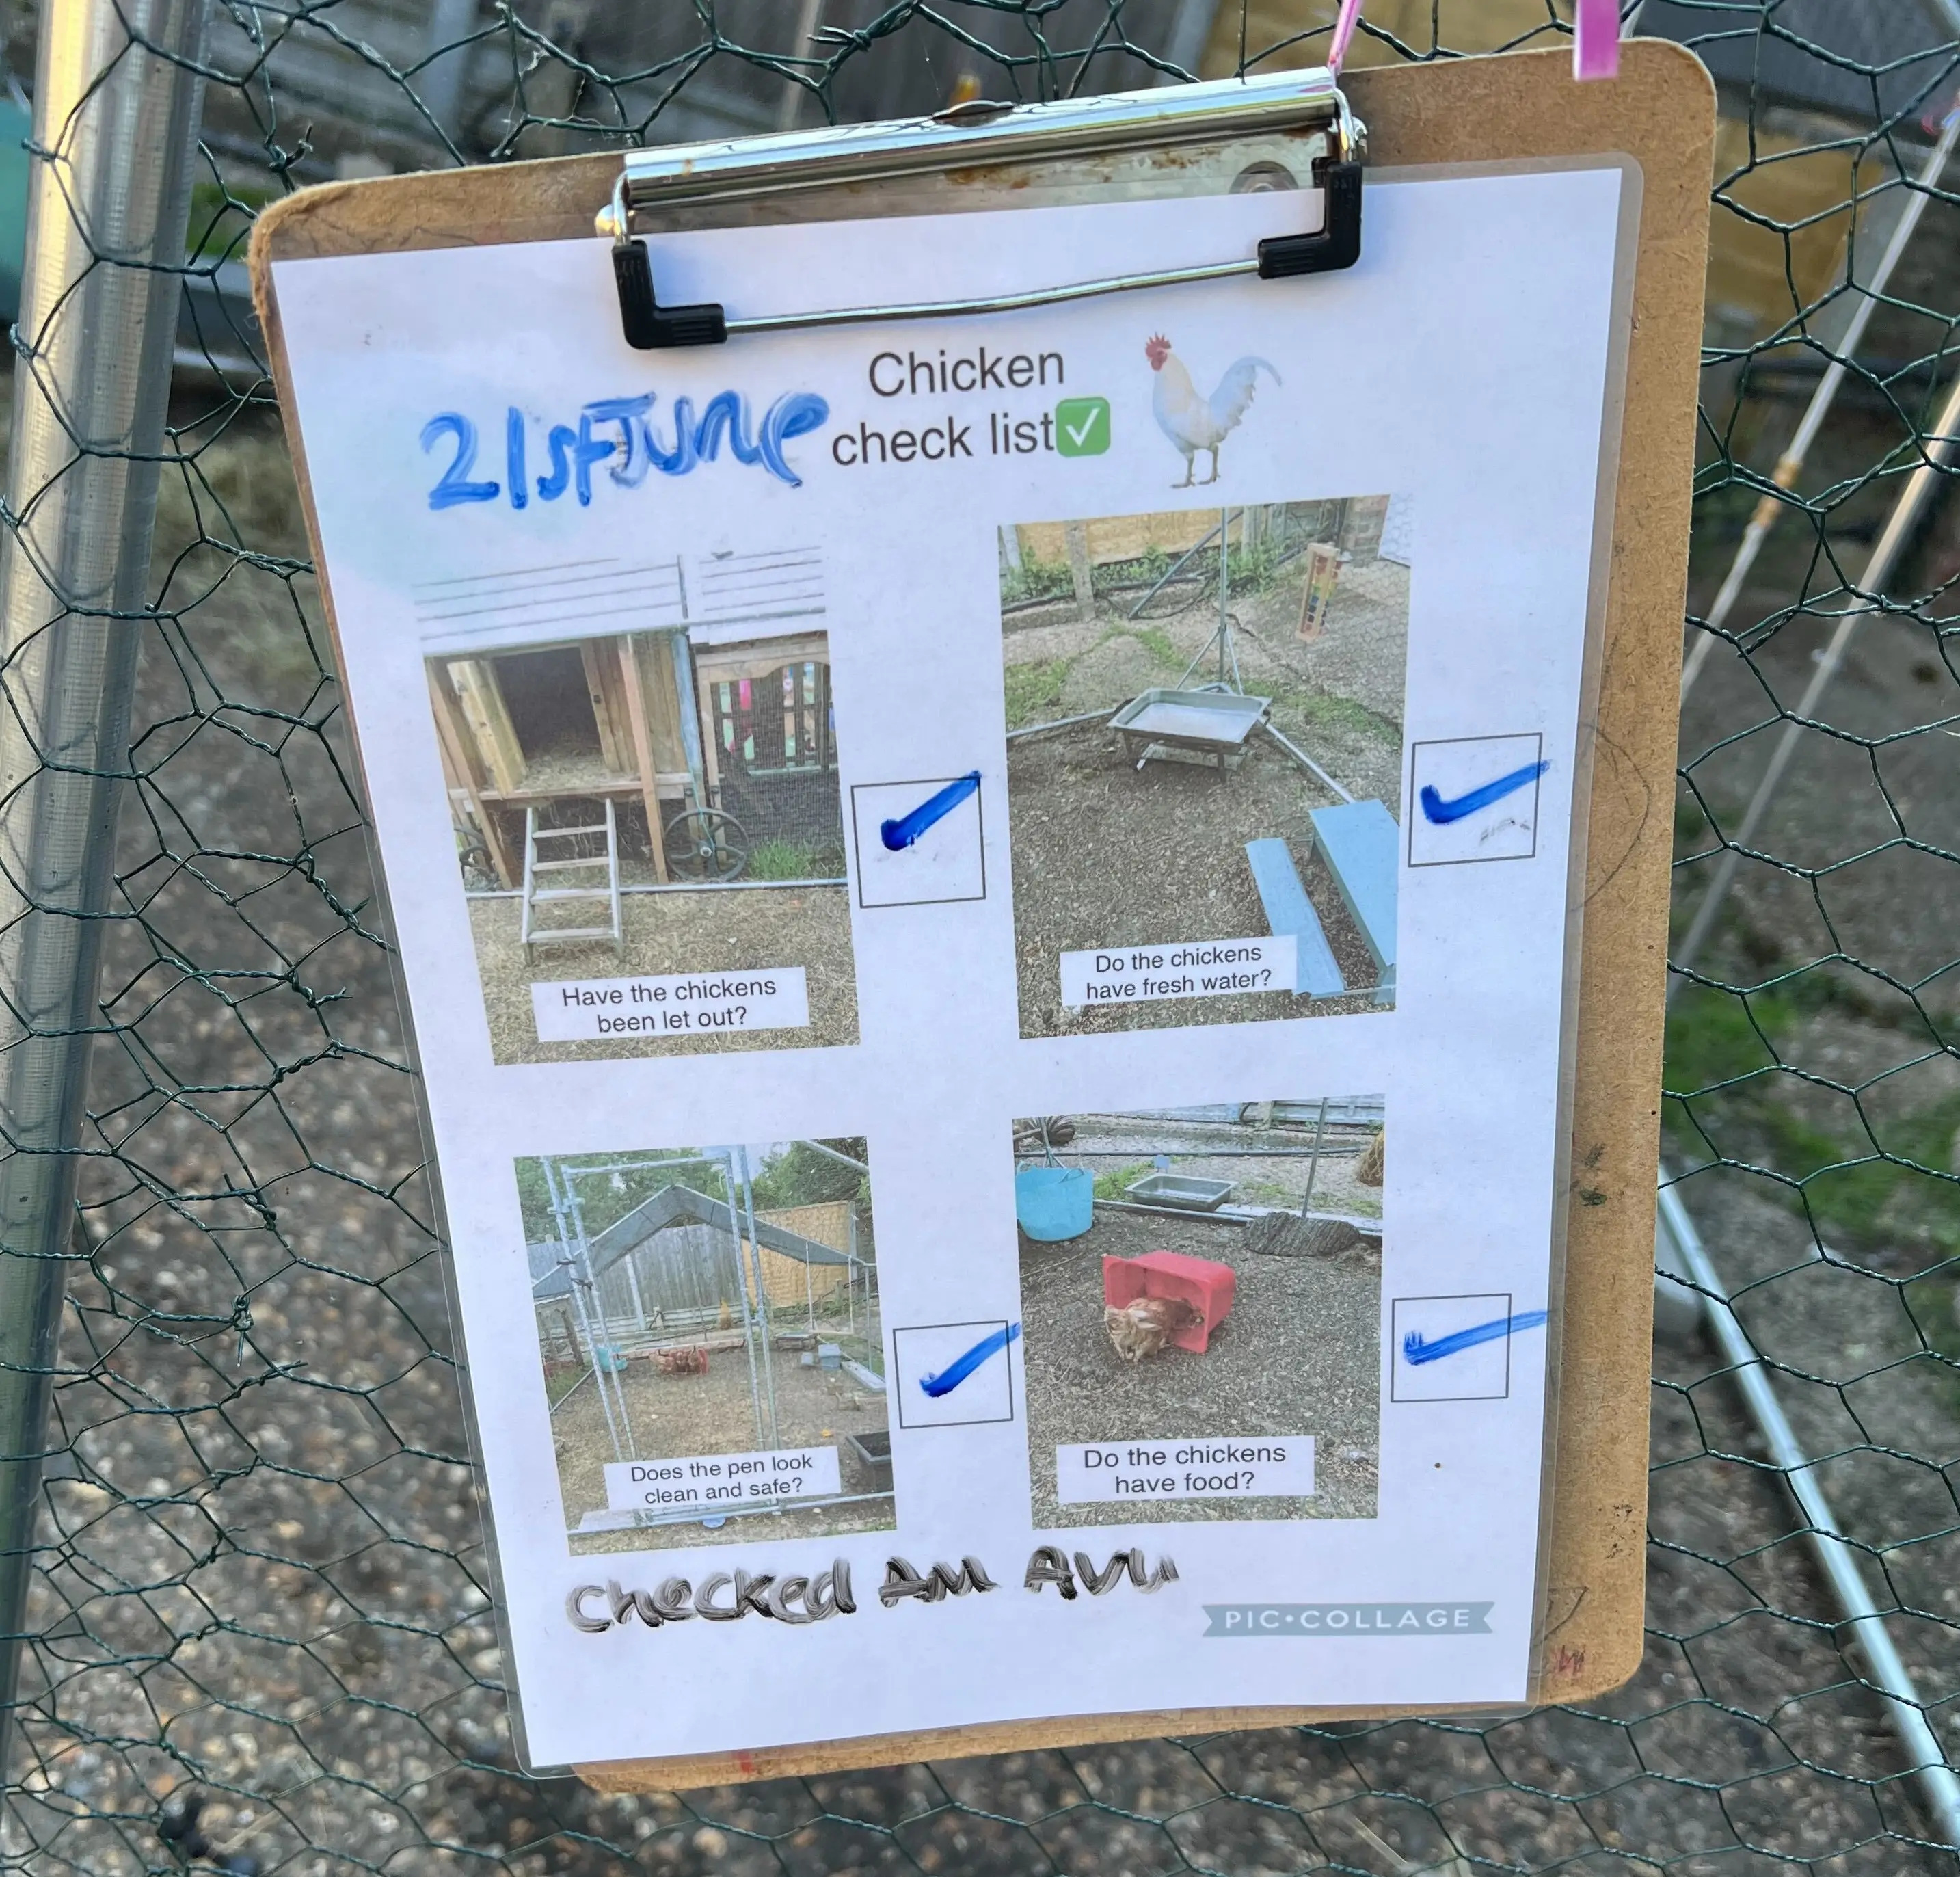 Chicken
21st June check list✅
Have the chickens
been let out?
Do the chickens
have fresh water?
Does the pen look
clean and safe?
Do the chickens
have food?
Checked AM
PIC•COLLAGE